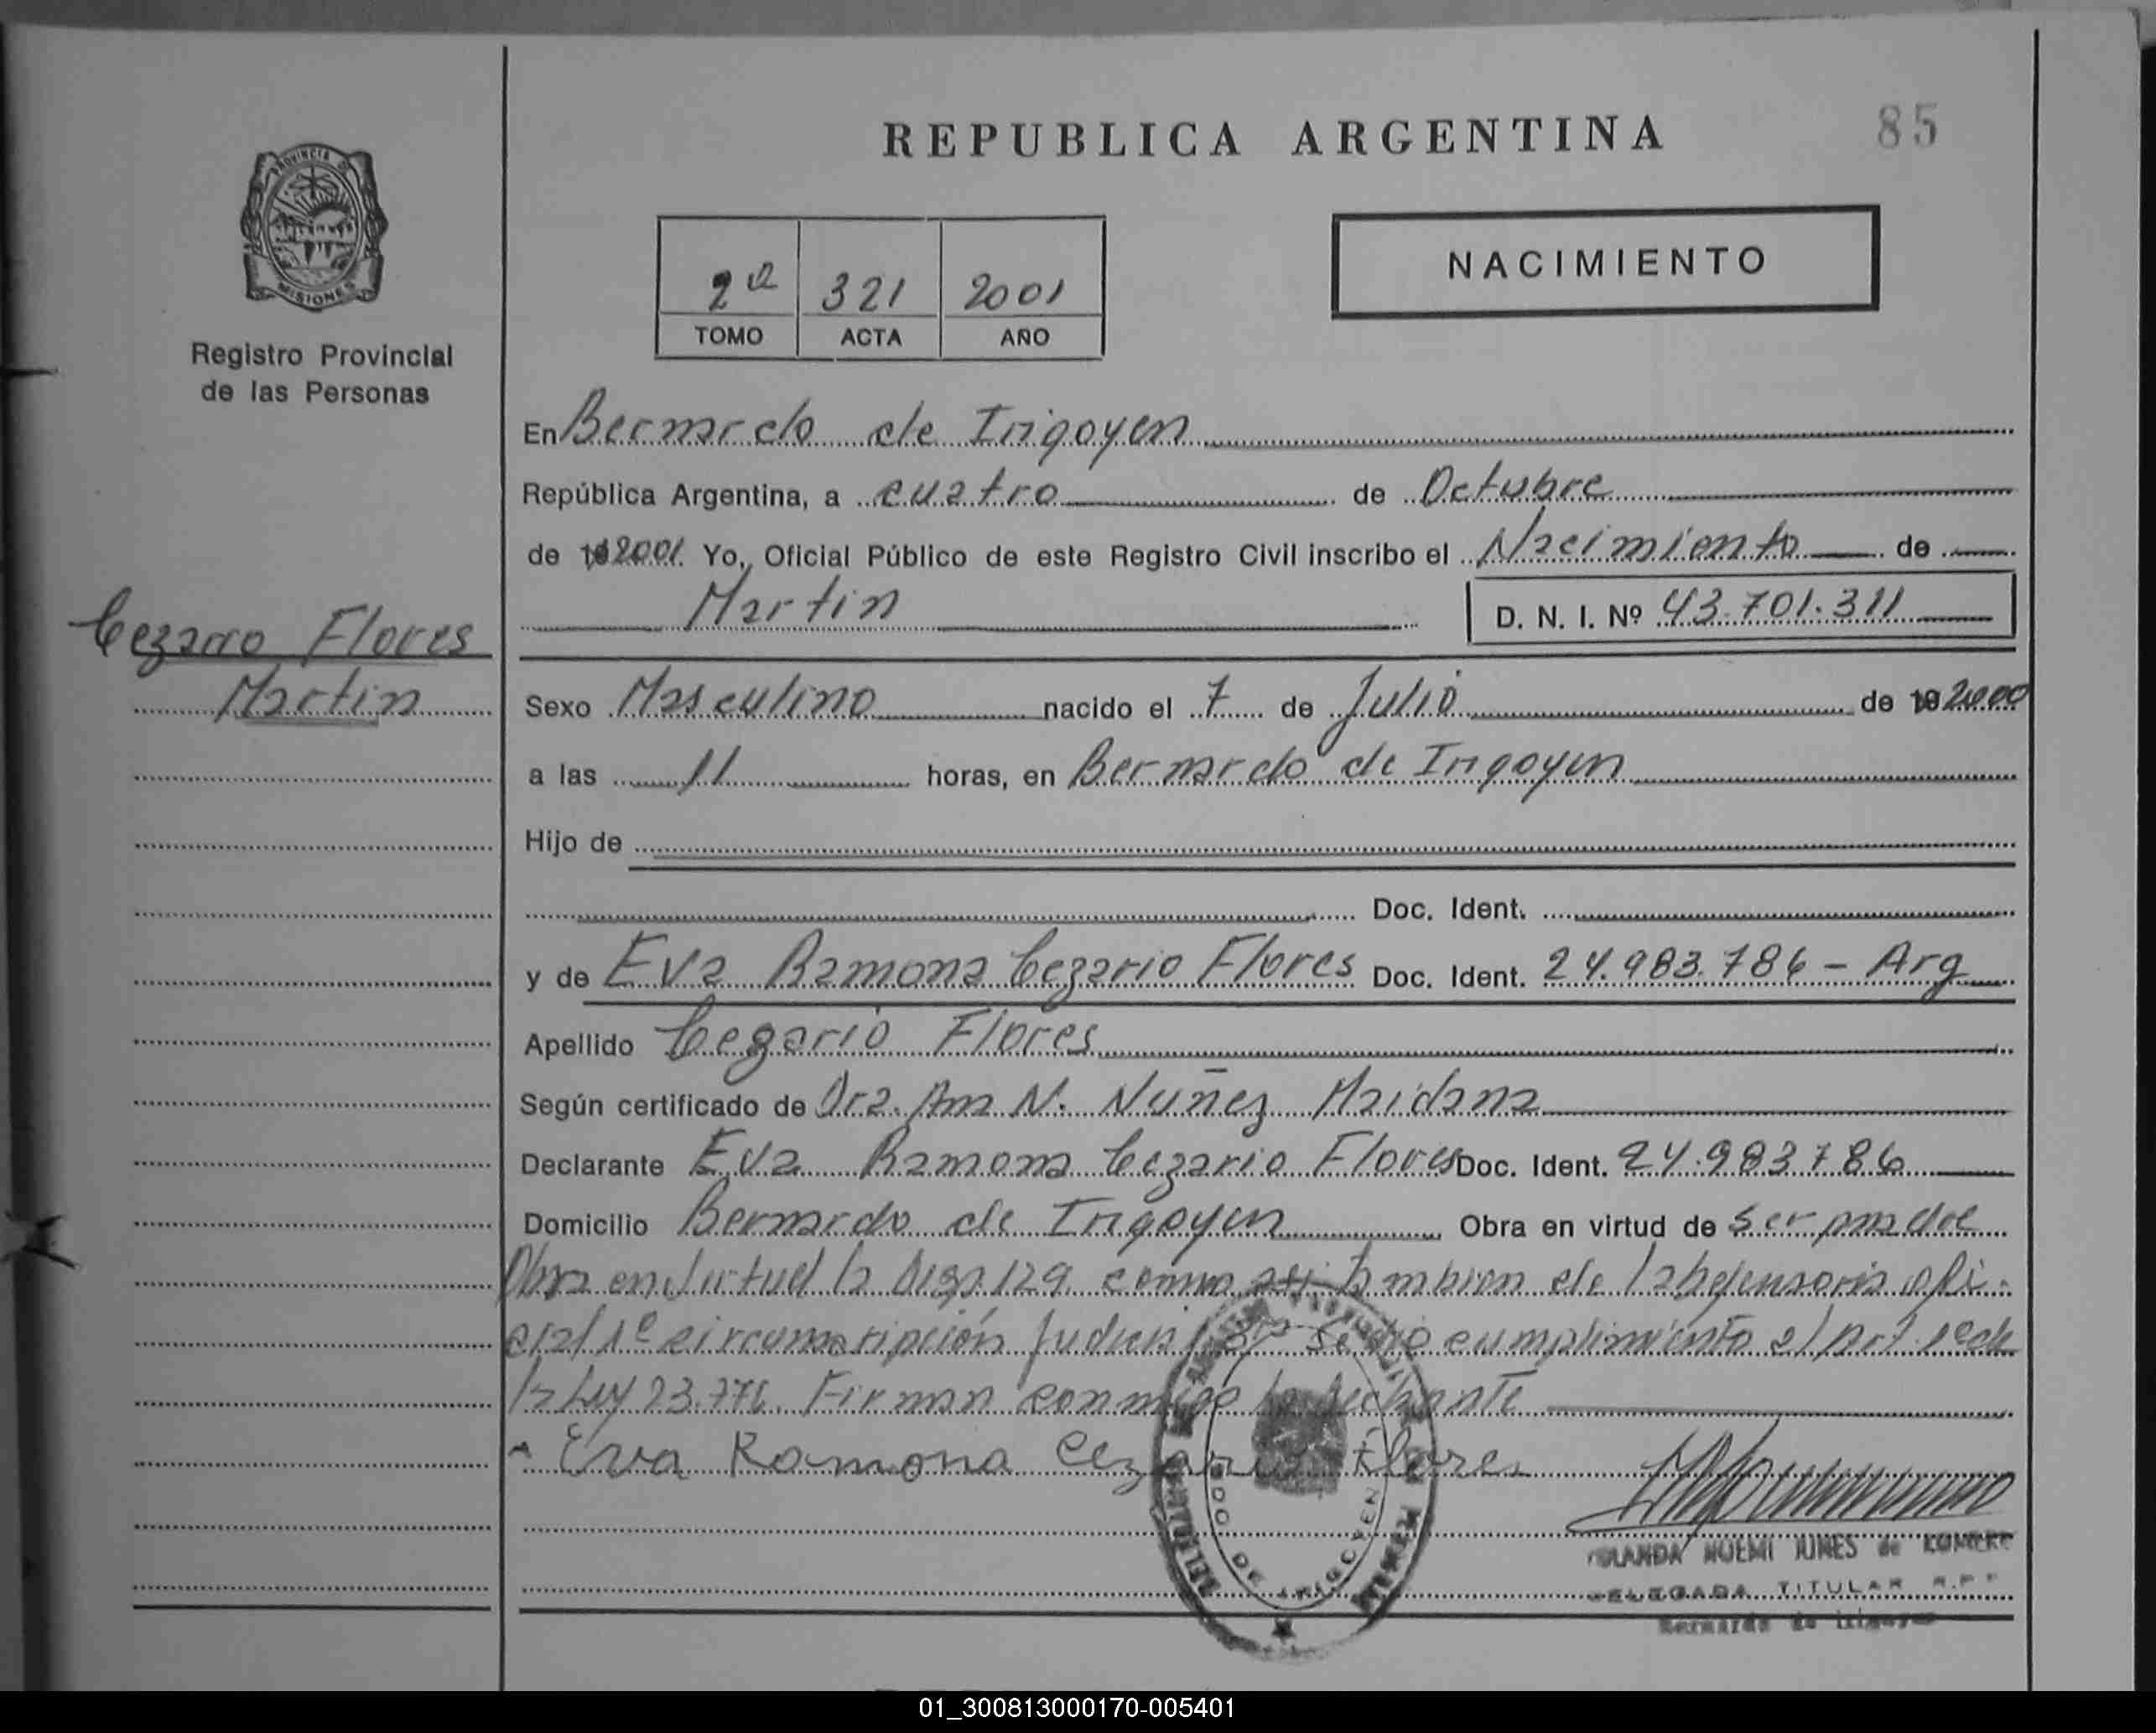 REPUBLICA ARGENTINA
85
PROVINCIA D
MISIONES
Registro Provincial
de las Personas
2ª 321 2001
TOMO ACTA AÑO
NACIMIENTO
En Bernardo de Irigoyen
República Argentina, a cuatro de Octubre
de 2001. Yo, Oficial Público de este Registro Civil inscribo el Nacimiento de
Martin D. N. I. Nº 43.701.311
Cezario Flores
Martin
Sexo Masculino nacido el 7 de Julio de 192000
a las 11 horas, en Bernardo de Irigoyen
Hijo de
Doc. Ident.
y de Eva Ramona Cezario Flores Doc. Ident. 24.983.786 - Arg
Apellido Cezario Flores
Según certificado de Dra. Ana N. Nuñez Maidana
Declarante Eva Ramona Cezario Flores Doc. Ident. 24.983786
Domicilio Bernardo de Irigoyen Obra en virtud de ser
Obra en virtud la Disp. 129 como asi tambien de la defensoria ofi-
cial 1º circunscripción Judicial Se dio cumplimiento al Art. 1º de
la Ley 23.776. Firman conmigo
Eva Ramona Cezario Flores
DO DE IRIGOYEN
NOEMI
DELEGADA TITULAR R.P.P
Bernardo de Irigoyen
01_300813000170-005401